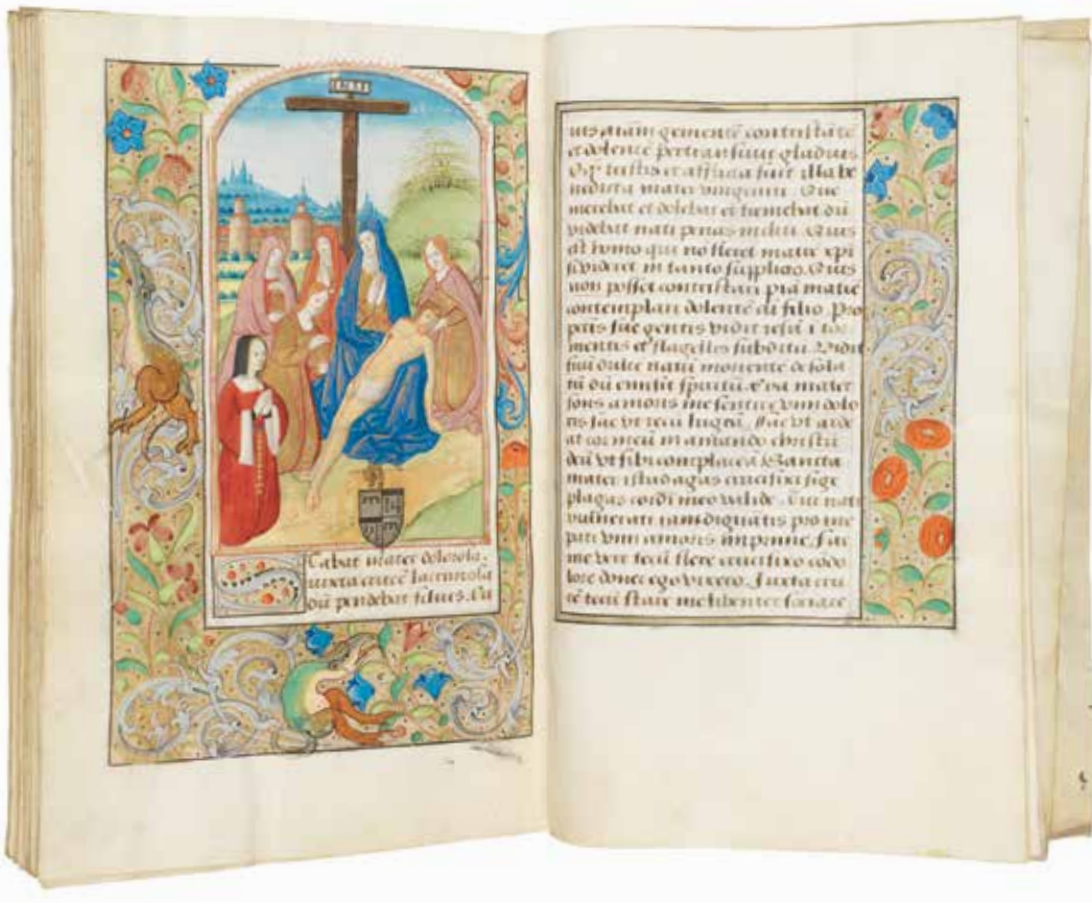 INRI
Stabat mater dolorosa.
iuxta crucē lacrimosa
dū pendebat filius. Cu
ius aīam gementē contristātē
et dolentē pertransiuit gladius
O qz tristis et afflicta fuit illa be
nedicta mater vnigeniti Que
merebat et dolebat et tremebat dū
videbat nati penas incliti Quis
est homo qui nō fleret matrē xpi
si videret in tanto supplicio. Quis
non posset contristari piā matrē
contemplari dolentē cū filio. Pro
pctis sue gentis vidit iesū ī tor
mentis et flagellis subditū. Vidit
suū dulcē natū morientē desola
tū dū emisit spiritū. Eya mater
fons amoris me sentire vim dolo
ris fac vt tecū lugeā. Fac vt arde
at cor meū in amando christū
deū vt sibi complaceā Sancta
mater istud agas crucifixi fige
plagas cordi meo valide. Tui nati
vulnerati iam dignatis pro me
pati vim amoris imprime. Fac
me vere tecū flere crucifixo cōdo
lore donec ego vixero. Iuxta cru
cē tecū stare me libenter sociare